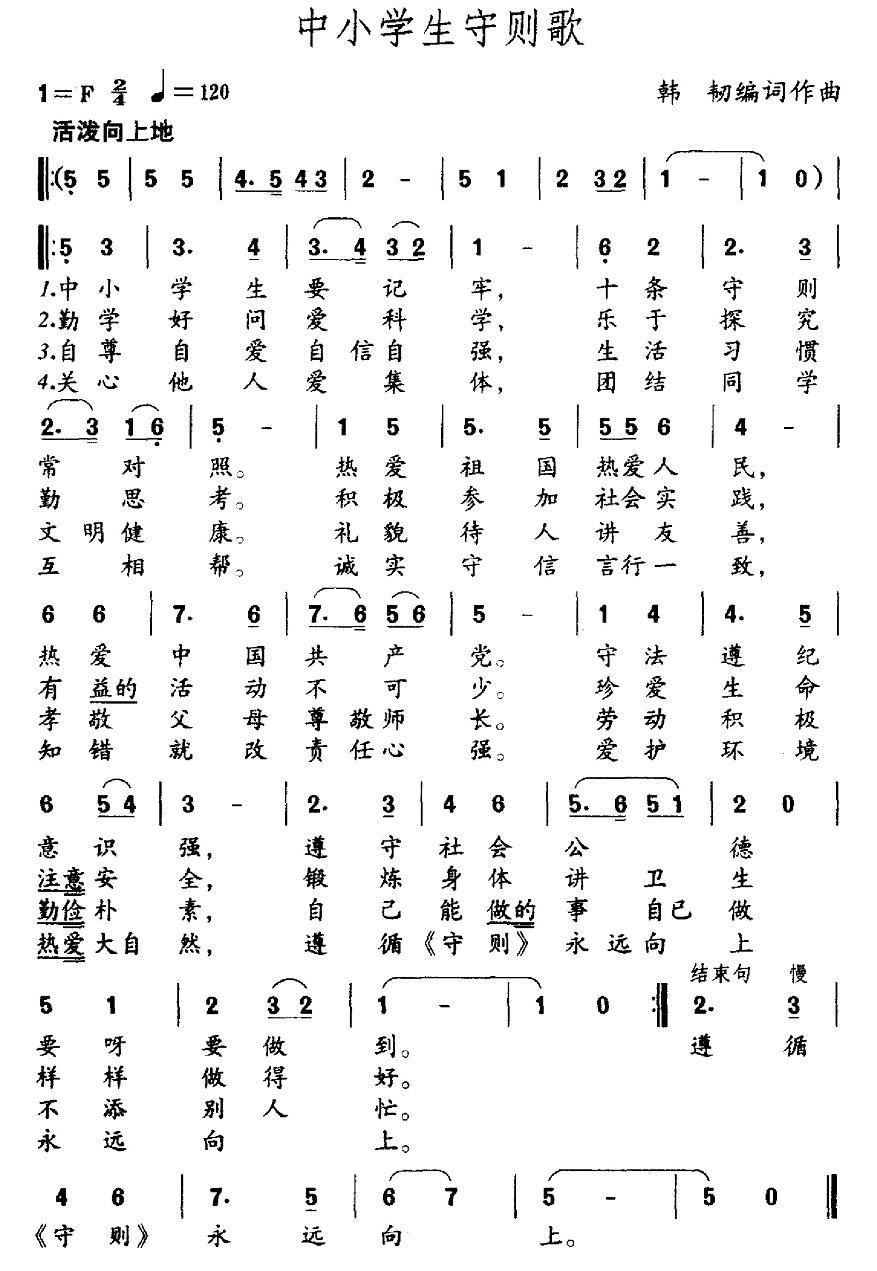 中小学生守则歌
1=F 2/4 ♩=120 韩 韧编词作曲
活泼向上地
‖:(5 5 | 5 5 | 4. 5 4 3 | 2 - | 5 1 | 2 3 2 | 1 - | 1 0) |
‖:5 3 | 3. 4 | 3. 4 3 2 | 1 - | 6 2 | 2. 3 |
1.中小学生要记牢, 十条守则
2.勤学好问爱科学, 乐于探究
3.自尊自爱自信自强, 生活习惯
4.关心他人爱集体, 团结同学
2. 3 1 6 | 5 - | 1 5 | 5. 5 | 5 5 6 | 4 - |
常对照。热爱祖国热爱人民,
勤思考。积极参加社会实践,
文明健康。礼貌待人讲友善,
互相帮。诚实守信言行一致,
6 6 | 7. 6 | 7. 6 5 6 | 5 - | 1 4 | 4. 5 |
热爱中国共产党。守法遵纪
有益的活动不可少。珍爱生命
孝敬父母尊敬师长。劳动积极
知错就改责任心强。爱护环境
6 5 4 | 3 - | 2. 3 | 4 6 | 5. 6 5 1 | 2 0 |
意识强, 遵守社会公德
注意安全, 锻炼身体讲卫生
勤俭朴素, 自己能做的事自己做
热爱大自然, 遵循《守则》永远向上
结束句 慢
5 1 | 2 3 2 | 1 - | 1 0 :‖ 2. 3 |
要呀要做到。 遵循
样样做得好。
不添别人忙。
永远向上。
4 6 | 7. 5 | 6 7 | 5 - | 5 0 ‖
《守则》永远向上。